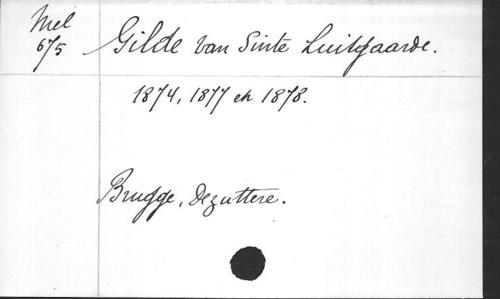 Mel
675
Gilde van Sinte Luitgaarde.
1874, 1877 en 1878.
Brugge, Dezuttere.